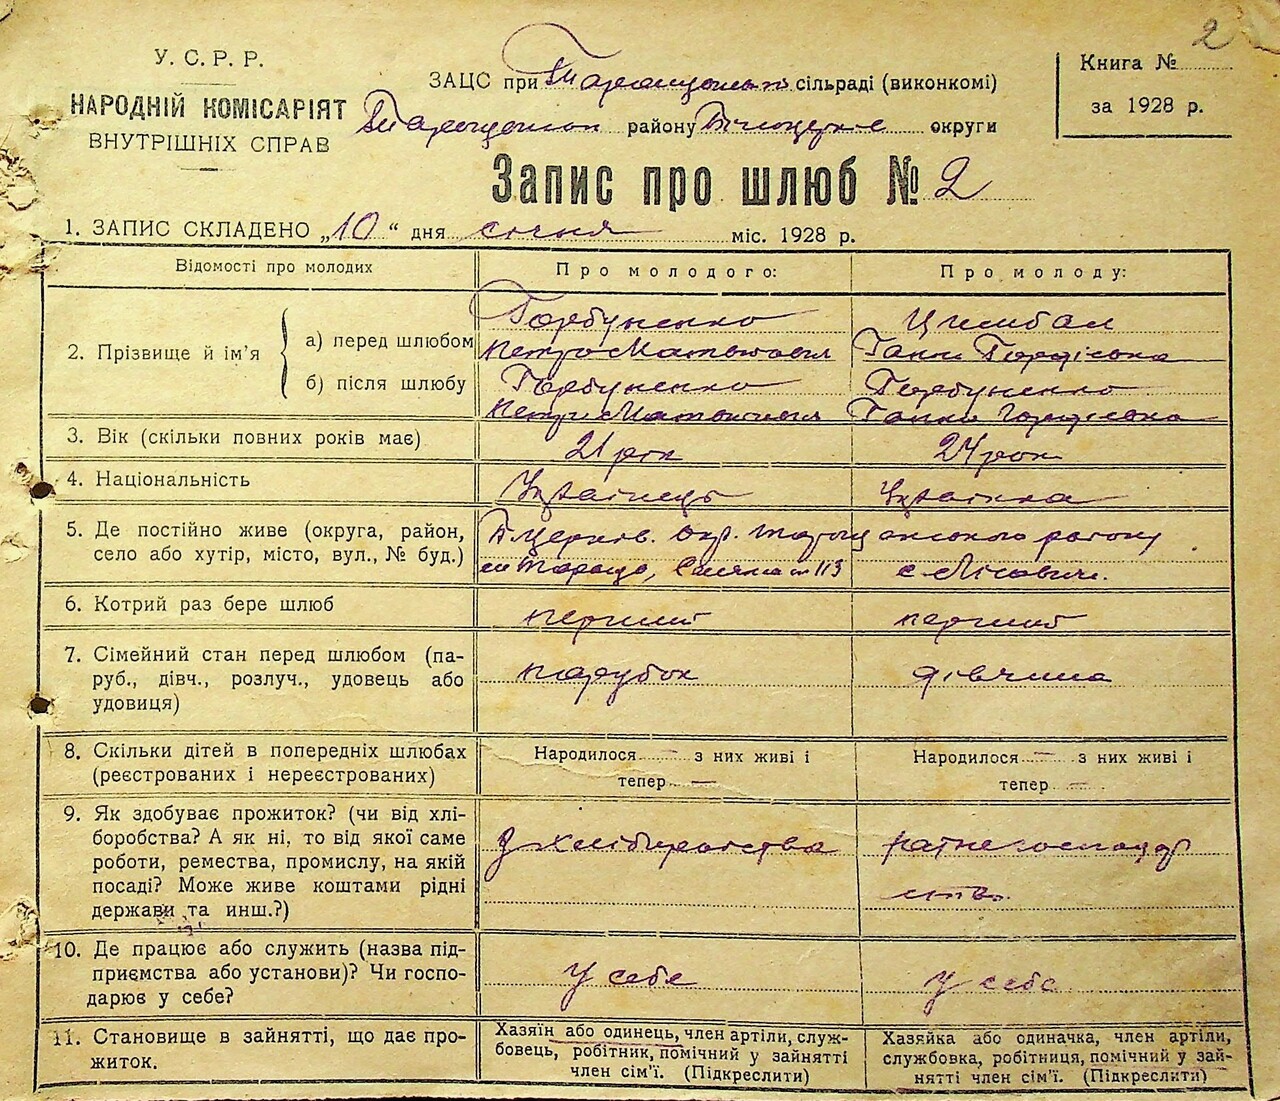 2
У. С. Р. Р.
НАРОДНІЙ КОМІСАРІЯТ
ВНУТРІШНІХ СПРАВ
ЗАЦС при Таращанськ сільраді (виконкомі)
району Білоцерк округи
Книга №
за 1928 р.
Запис про шлюб № 2
1. ЗАПИС СКЛАДЕНО „10“ дня січня міс. 1928 р.
Відомості про молодих
Про молодого:
Про молоду:
2. Прізвище й ім'я
а) перед шлюбом
Горбуненко
Петро Матвійович
Цимбал
Ганна Гордіївна
б) після шлюбу
Горбуненко
Петро Матвійович
Горбуненко
Ганна Гордіївна
3. Вік (скільки повних років має)
21 рік
24 рок
4. Національність
Українець
Українка
5. Де постійно живе (округа, район,
село або хутір, місто, вул., № буд.)
Б.Церків. Окр. Таращанського району
м Тараща, 113
с. Лісовичі.
6. Котрий раз бере шлюб
перший
перший
7. Сімейний стан перед шлюбом (па-
руб., дівч., розлуч., удовець або
удовиця)
парубок
дівчина
8. Скільки дітей в попередніх шлюбах
(реєстрованих і нереєстрованих)
Народилося — з них живі і
тепер —
Народилося — з них живі і
тепер —
9. Як здобуває прожиток? (чи від хлі-
боробства? А як ні, то від якої саме
роботи, ремества, промислу, на якій
посаді? Може живе коштами рідні
держави та инш.?)
З хліборобства
господар
ство
10. Де працює або служить (назва під-
приємства або установи)? Чи госпо-
дарює у себе?
у себе
у себе
11. Становище в зайнятті, що дає про-
житок.
Хазяїн або одинець, член артіли, служ-
бовець, робітник, помічний у зайнятті
член сім'ї. (Підкреслити)
Хазяйка або одиначка, член артіли,
службовка, робітниця, помічний у зай-
нятті член сім'ї. (Підкреслити)